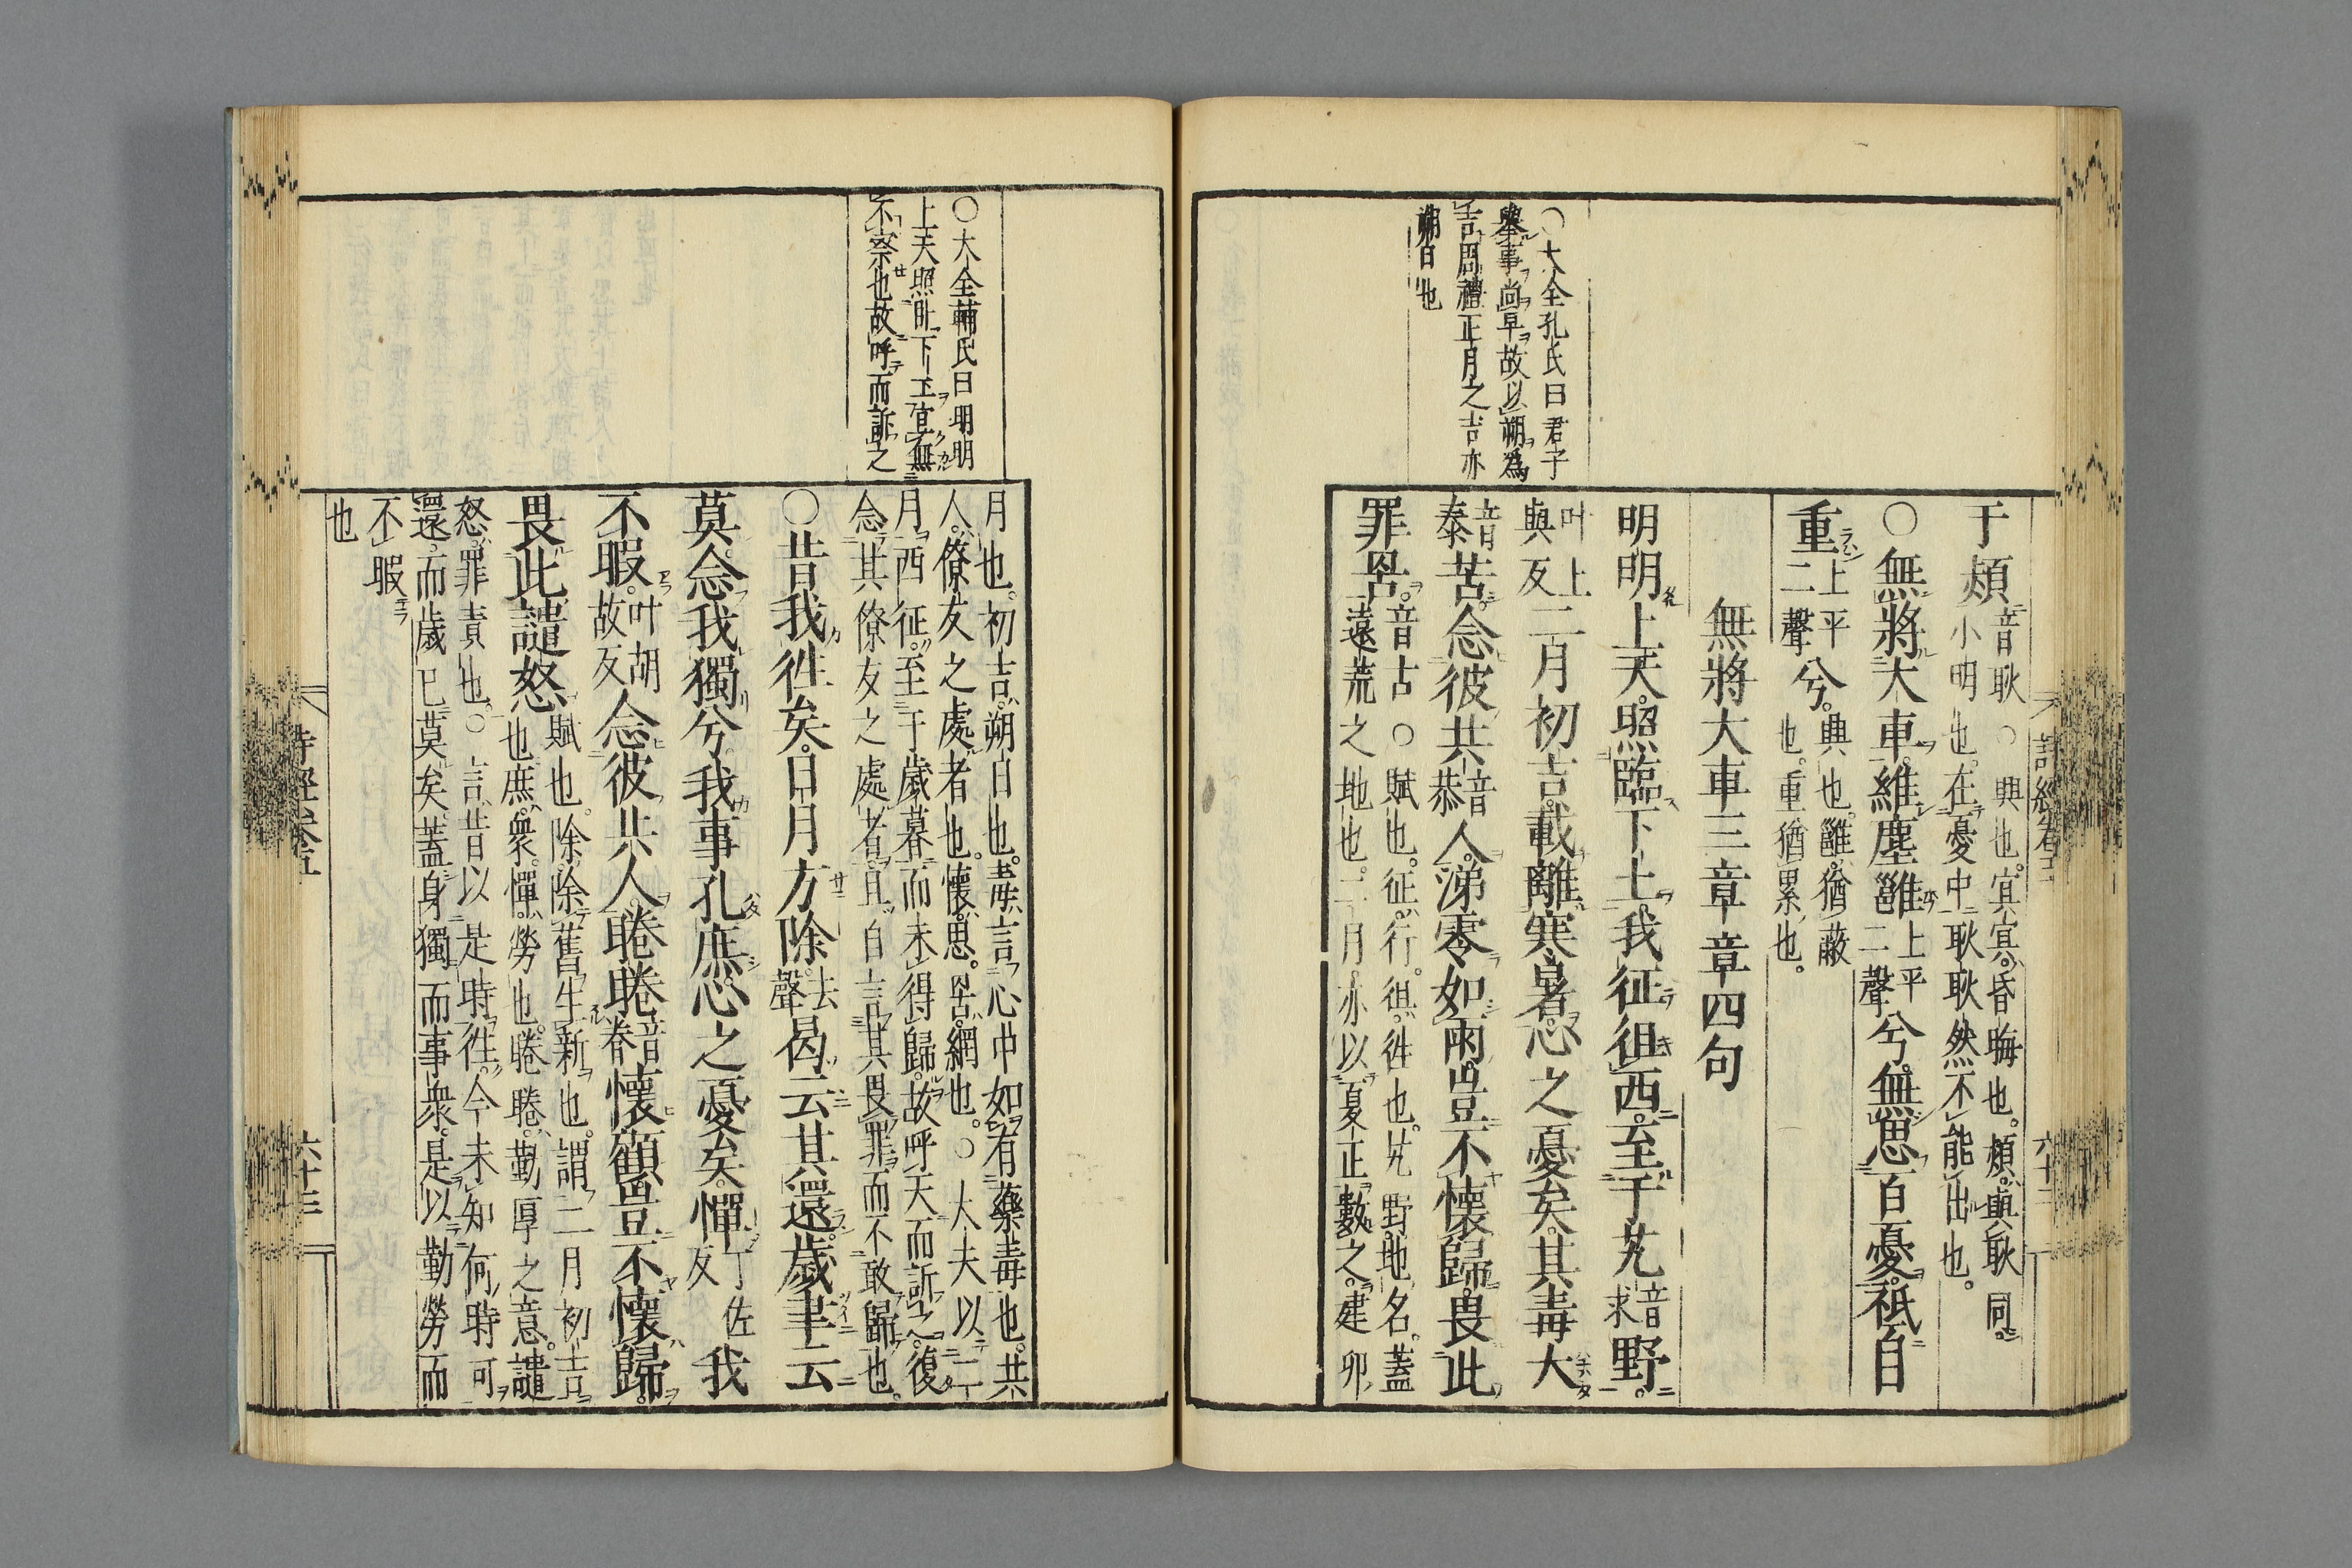 ○大全孔氏曰君子
舉事尚早故以朔為
吉周禮正月之吉亦
朔日也
于熲音耿○興也冥冥昏晦也熲與耿同
小明也在憂中耿耿然不能出也
○無將大車維塵雝上平二聲兮無思百憂祗自
重上平二聲兮興也雝猶蔽也重猶累也
無將大車三章章四句
明明上天照臨下土我征徂西至于艽音求野
叶上與反二月初吉載離寒暑心之憂矣其毒大
音泰苦念彼共音恭人涕零如雨豈不懷歸畏此
罪罟音古○賦也征行徂往也艽野地名蓋
遠荒之地也二月亦以夏正數之建卯
○大全輔氏曰明明
上天照臨下土宜無
不察也故呼而訴之
月也初吉朔日也毒言心中如有藥毒也共
人僚友之處者也懷思罟網也○大夫以二
月西征至于歲暮而未得歸故呼天而訴之復
念其僚友之處者且自言其畏罪而不敢歸也
○昔我徃矣日月方除去聲曷云其還歲聿云
莫念我獨兮我事孔庶心之憂矣憚丁佐反我
不暇叶胡故反念彼共人睠睠音眷懷顧豈不懷歸
畏此譴怒賦也除除舊生新也謂二月初吉
也庶衆憚勞也睠睠勤厚之意譴
怒罪責也○言昔以是時徃今未知何時可
還而歲已莫矣蓋身獨而事衆是以勤勞而
不暇
也
詩經卷五
六十三